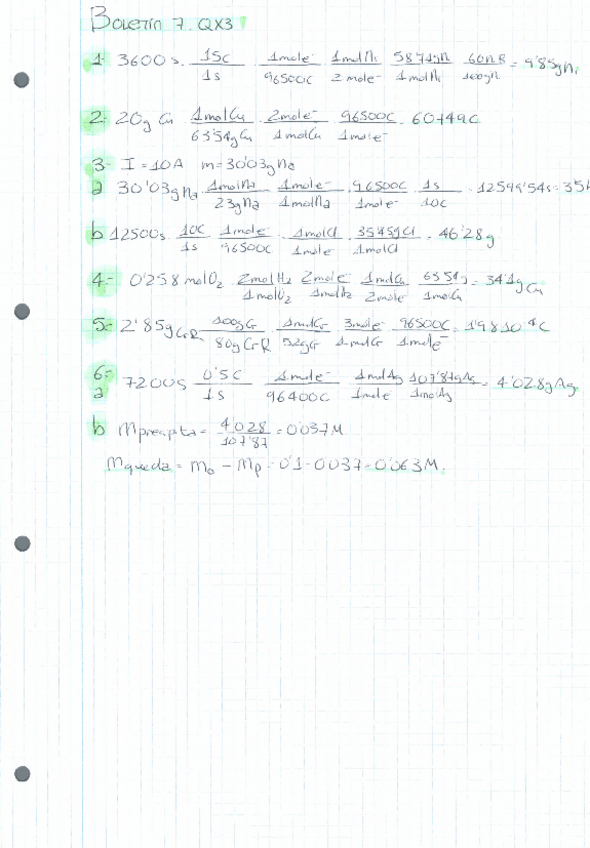 Boletín 7. QX3
1- 3600 s. 15C/1s · 1mole⁻/96500C · 1molNi/2mole⁻ · 58'71gNi/1molNi · 60nR/100gn = 9'85gNi
2- 20g Cu · 1molCu/63'54gCu · 2mole⁻/1molCu · 96500C/1mole⁻ = 60749C
3- I = 10A m = 30'03g Na
a 30'03gNa · 1molNa/23gNa · 1mole⁻/1molNa · 96500C/1mole⁻ · 1s/10C = 12599'54s = 3'5h
b 12500s · 10C/1s · 1mole⁻/96500C · 1molCl/1mole⁻ · 35'45gCl/1molCl = 46'28g
4- 0'258 molO₂ 2molH₂/1molO₂ 2mole⁻/1molH₂ 1molCu/2mole⁻ 63'54g/1molCu = 34'1gCu
5- 2'85gCrR 100gCr/80gCrR 1molCr/52gCr 3mole⁻/1molCr 96500C/1mole⁻ = 1'98 10⁴C
6-
a 7200s 0'5C/1s 1mole⁻/96400C 1molAg/1mole 107'87gAg/1molAg = 4'028g Ag
b Mprecipta = 4'028/107'87 = 0'037M
Mqueda = Mo - Mp = 0'1 - 0'037 = 0'063M.